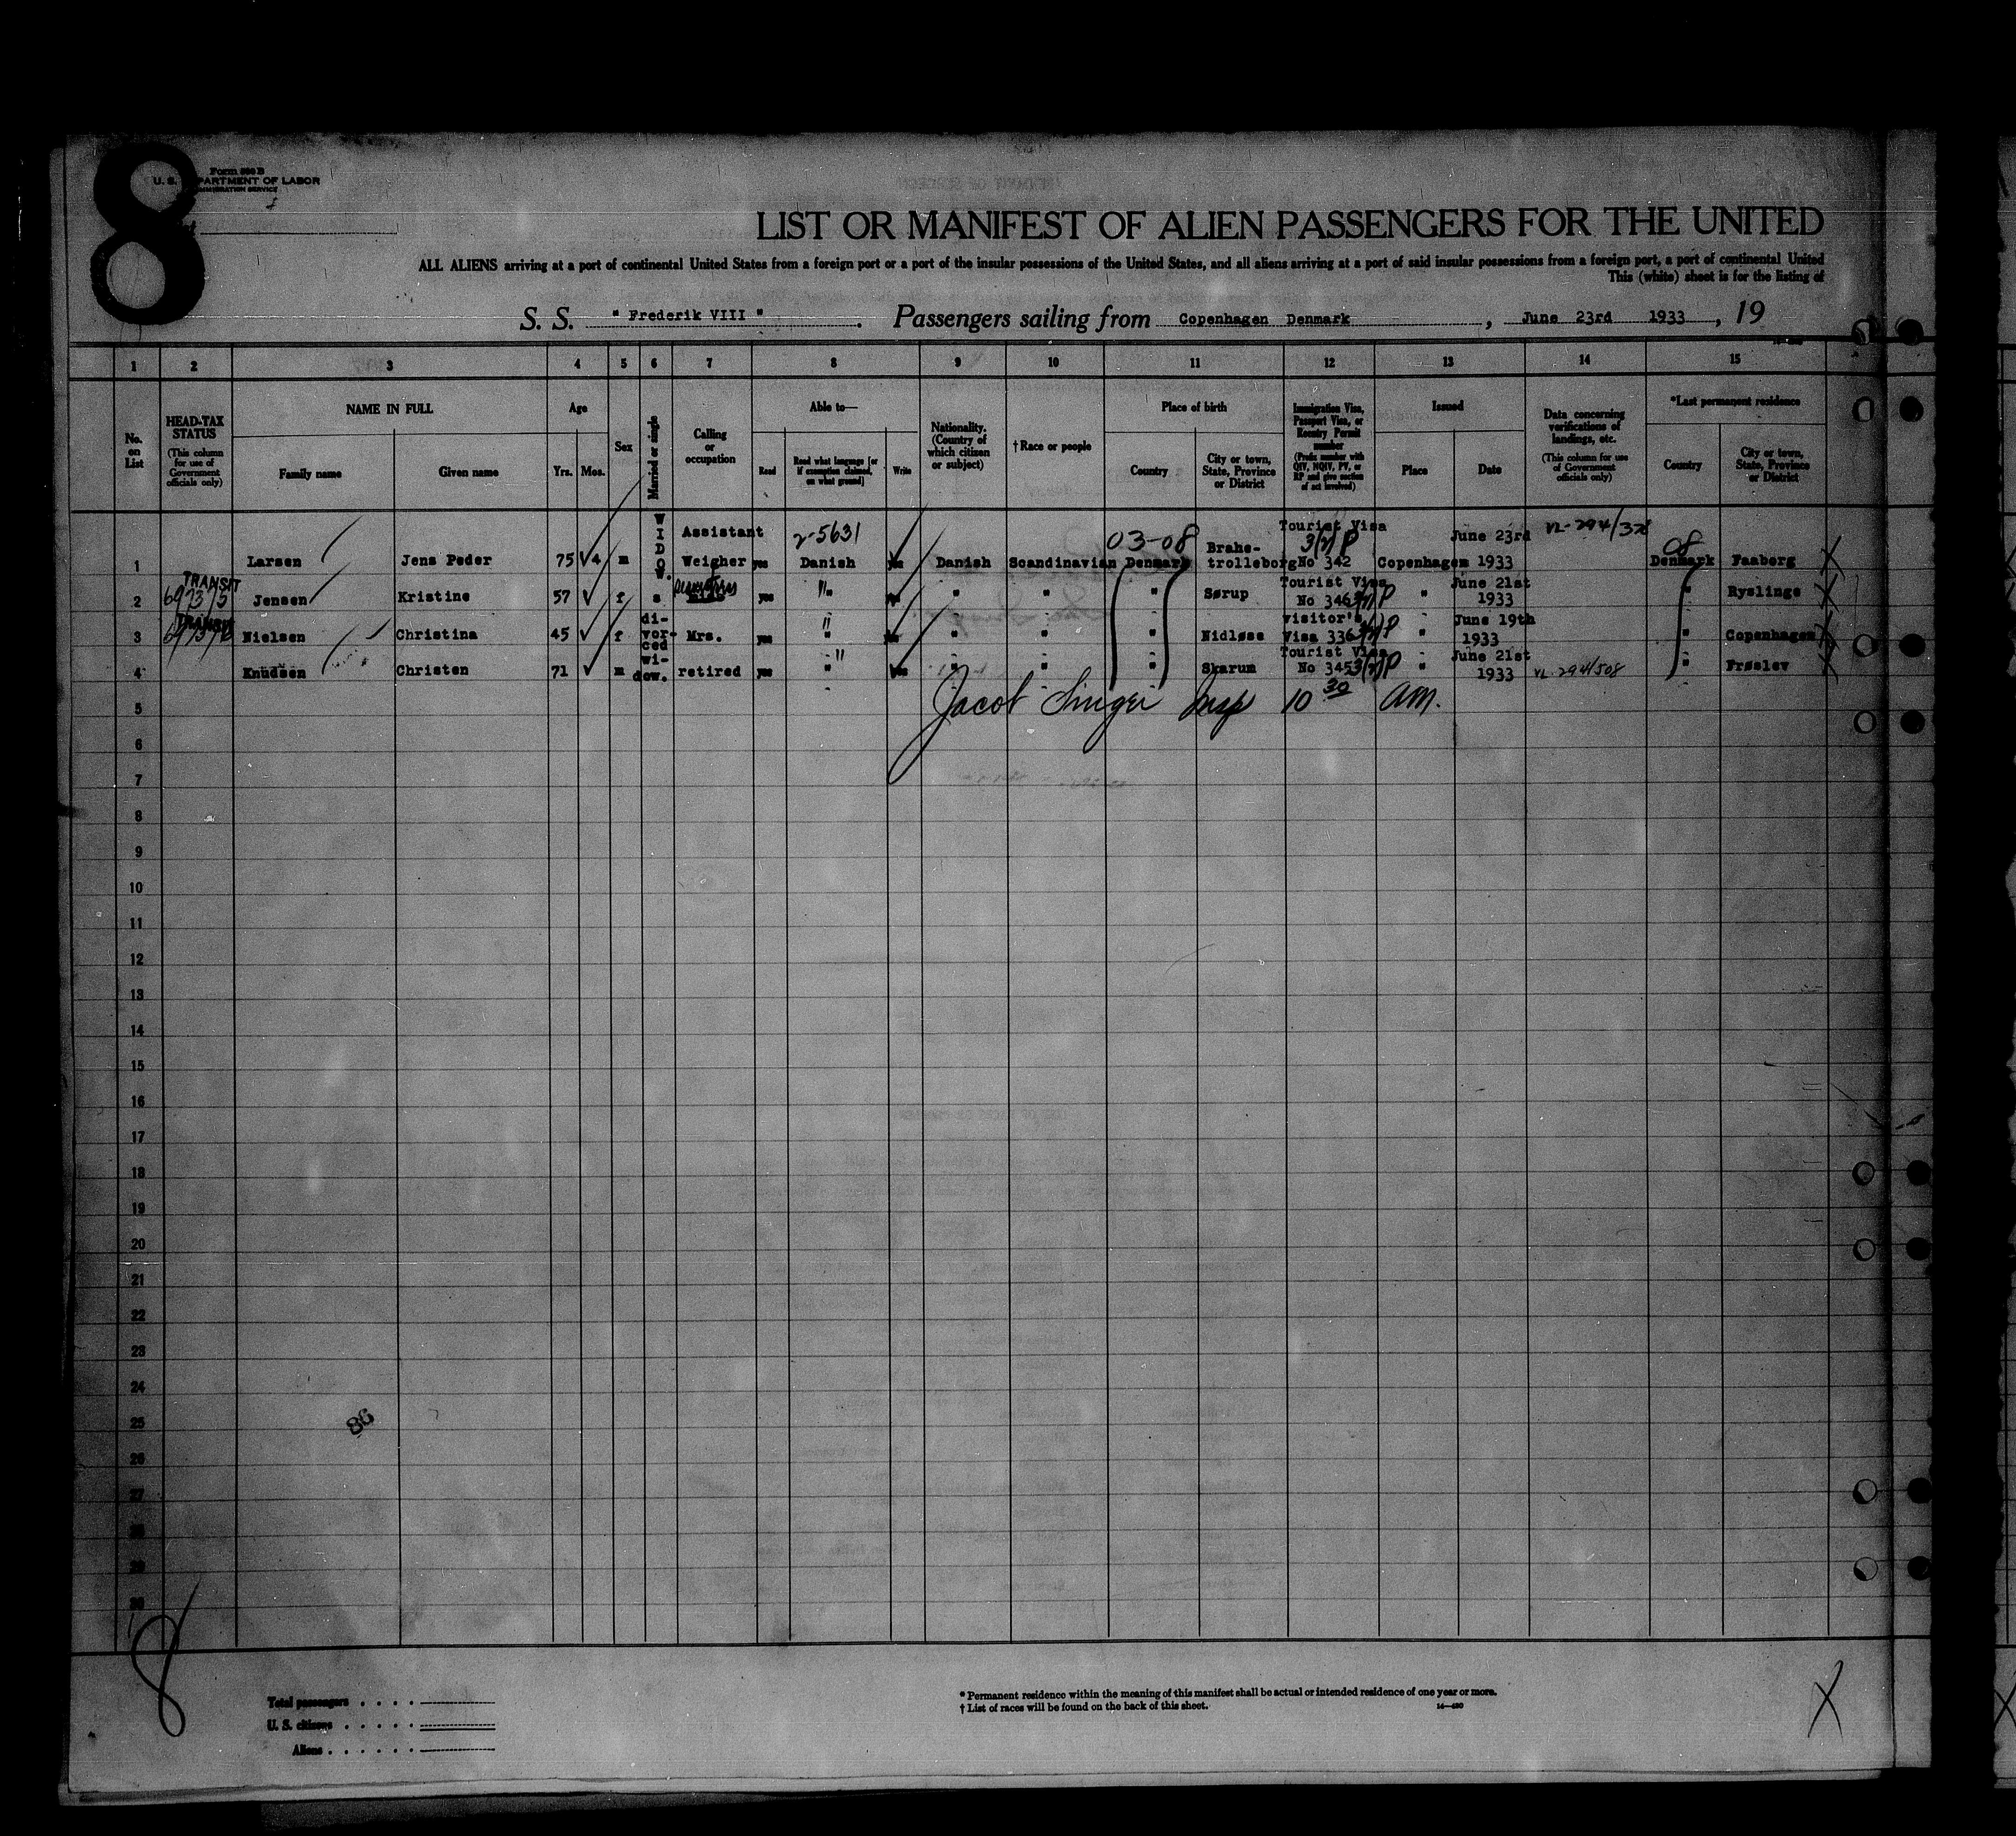 8
Form 500 B
U. S. DEPARTMENT OF LABOR
IMMIGRATION SERVICE
LIST OR MANIFEST OF ALIEN PASSENGERS FOR THE UNITED
ALL ALIENS arriving at a port of continental United States from a foreign port or a port of the insular possessions of the United States, and all aliens arriving at a port of said insular possessions from a foreign port, a port of continental United
This (white) sheet is for the listing of
S. S. " Frederik VIII ". Passengers sailing from Copenhagen Denmark, June 23rd 1933, 19
1 2 3 4 5 6 7 8 9 10 11 12 13 14 15
No. on List
HEAD-TAX STATUS (This column for use of Government officials only)
NAME IN FULL
Family name
Given name
Age
Yrs. Mos.
Sex
Married or single
Calling or occupation
Able to—
Read
Read what language [or if exemption claimed, on what ground]
Write
Nationality. (Country of which citizen or subject)
† Race or people
Place of birth
Country
City or town, State, Province or District
Immigration Visa, Passport Visa, or Reentry Permit number (Prefix number with QIV, NQIV, PV, or RP and give section of act involved)
Issued
Place
Date
Data concerning verifications of landings, etc. (This column for use of Government officials only)
*Last permanent residence
Country
City or town, State, Province or District
1 Larsen Jens Peder 75 4 m WIDOW. Assistant Weigher yes 2-5631 Danish yes Danish Scandinavian 03-08 Denmark Brahe-trolleborg Tourist Visa 3(2) P No 342 Copenhagen June 23rd 1933 VL-294/32 08 Denmark Faaborg
2 TRANSIT Jensen Kristine 57 f s yes " yes " " " Sørup Tourist Visa No 346 3(2) P " June 21st 1933 " Ryslinge
3 TRANSIT Nielsen Christina 45 f di-vor-ced Mrs. yes " yes " " " Nidløse visitor's Visa 336 P " June 19th 1933 " Copenhagen
4 Knudsen Christen 71 m wi-dow. retired yes " yes " " " Skarum Tourist Visa No 345 3(2) P " June 21st 1933 VL 294/508 " Frøslev
5 Jacob Singer Insp 10 30 am.
6
7
8
9
10
11
12
13
14
15
16
17
18
19
20
21
22
23
24
25
86
26
27
28
29
30
8
Total passengers
U. S. citizens
Aliens
* Permanent residence within the meaning of this manifest shall be actual or intended residence of one year or more.
† List of races will be found on the back of this sheet.
14—430
X